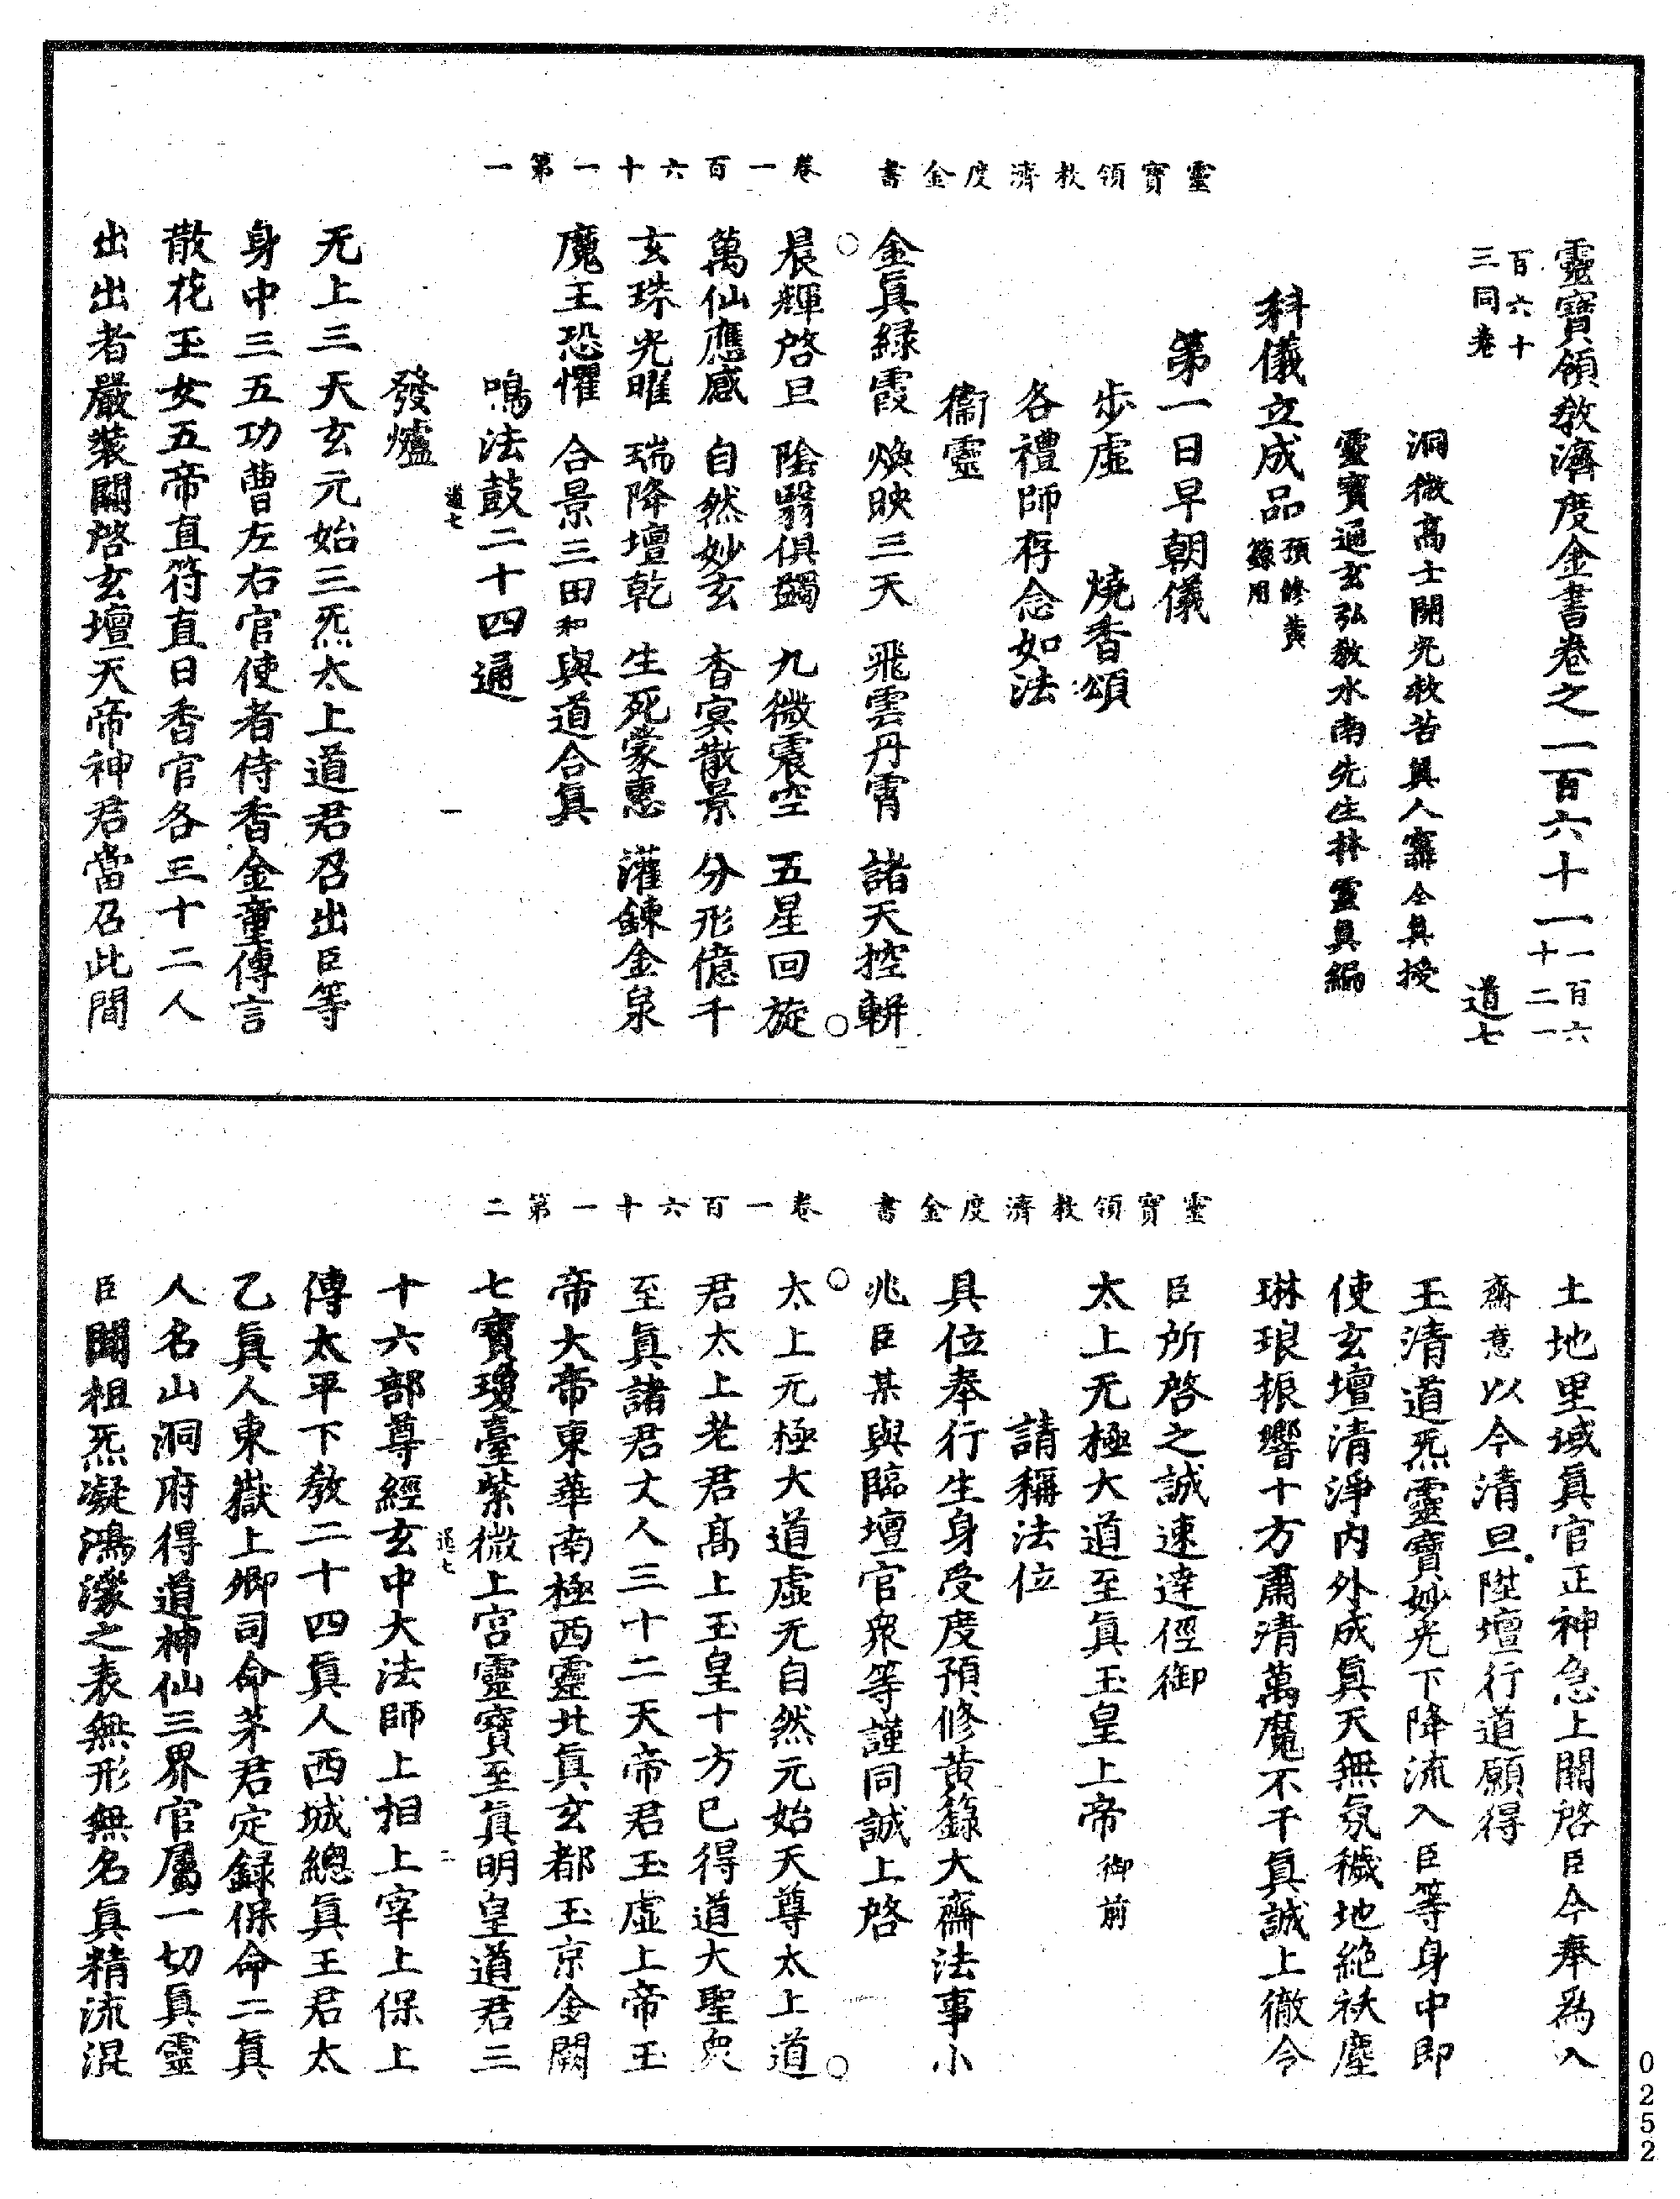 靈寶領敎濟度金書 卷一百六十一第一
靈寶領敎濟度金書卷之一百六十一一百六十二一
百六十三同卷
道七
洞微高士開光救苦眞人寗全眞授
靈寶通玄弘敎水南先生林靈眞編
科儀立成品預修黃籙用
第一日早朝儀
步虛 燒香頌
各禮師存念如法
衞靈
金眞綠霞 煥映三天 飛雲丹霄 諸天控軿
晨輝啓旦 陰翳俱蠲 九微震空 五星回旋
萬仙應感 自然妙玄 杳冥散景 分形億千
玄珠光曜 瑞降壇乾 生死蒙惠 灌鍊金泉
魔王恐懼 合景三田和與道合眞
鳴法鼓二十四通
道七 一
發爐
无上三天玄元始三炁太上道君召出臣等
身中三五功曹左右官使者侍香金童傳言
散花玉女五帝直符直日香官各三十二人
出出者嚴裝關啓玄壇天帝神君當召此間
靈寶領敎濟度金書 卷一百六十一第二
土地里域眞官正神急上關啓臣今奉爲入
齋意以今清旦陞壇行道願得
玉清道炁靈寶妙光下降流入臣等身中卽
使玄壇清淨內外成眞天無氛穢地絶袄塵
琳琅振響十方肅清萬魔不干眞誠上徹令
臣所啓之誠速達徑御
太上无極大道至眞玉皇上帝御前
請稱法位
具位奉行生身受度預修黃籙大齋法事小
兆臣某與臨壇官衆等謹同誠上啓
太上无極大道虛无自然元始天尊太上道
君太上老君高上玉皇十方已得道大聖衆
至眞諸君丈人三十二天帝君玉虛上帝玉
帝大帝東華南極西靈北眞玄都玉京金闕
七寶瓊臺紫微上宮靈寶至眞明皇道君三
道七 二
十六部尊經玄中大法師上相上宰上保上
傳太平下敎二十四眞人西城總眞王君太
乙眞人東嶽上卿司命茅君定録保命二眞
人名山洞府得道神仙三界官屬一切眞靈
臣聞祖炁凝鴻濛之表無形無名眞精流混
0252